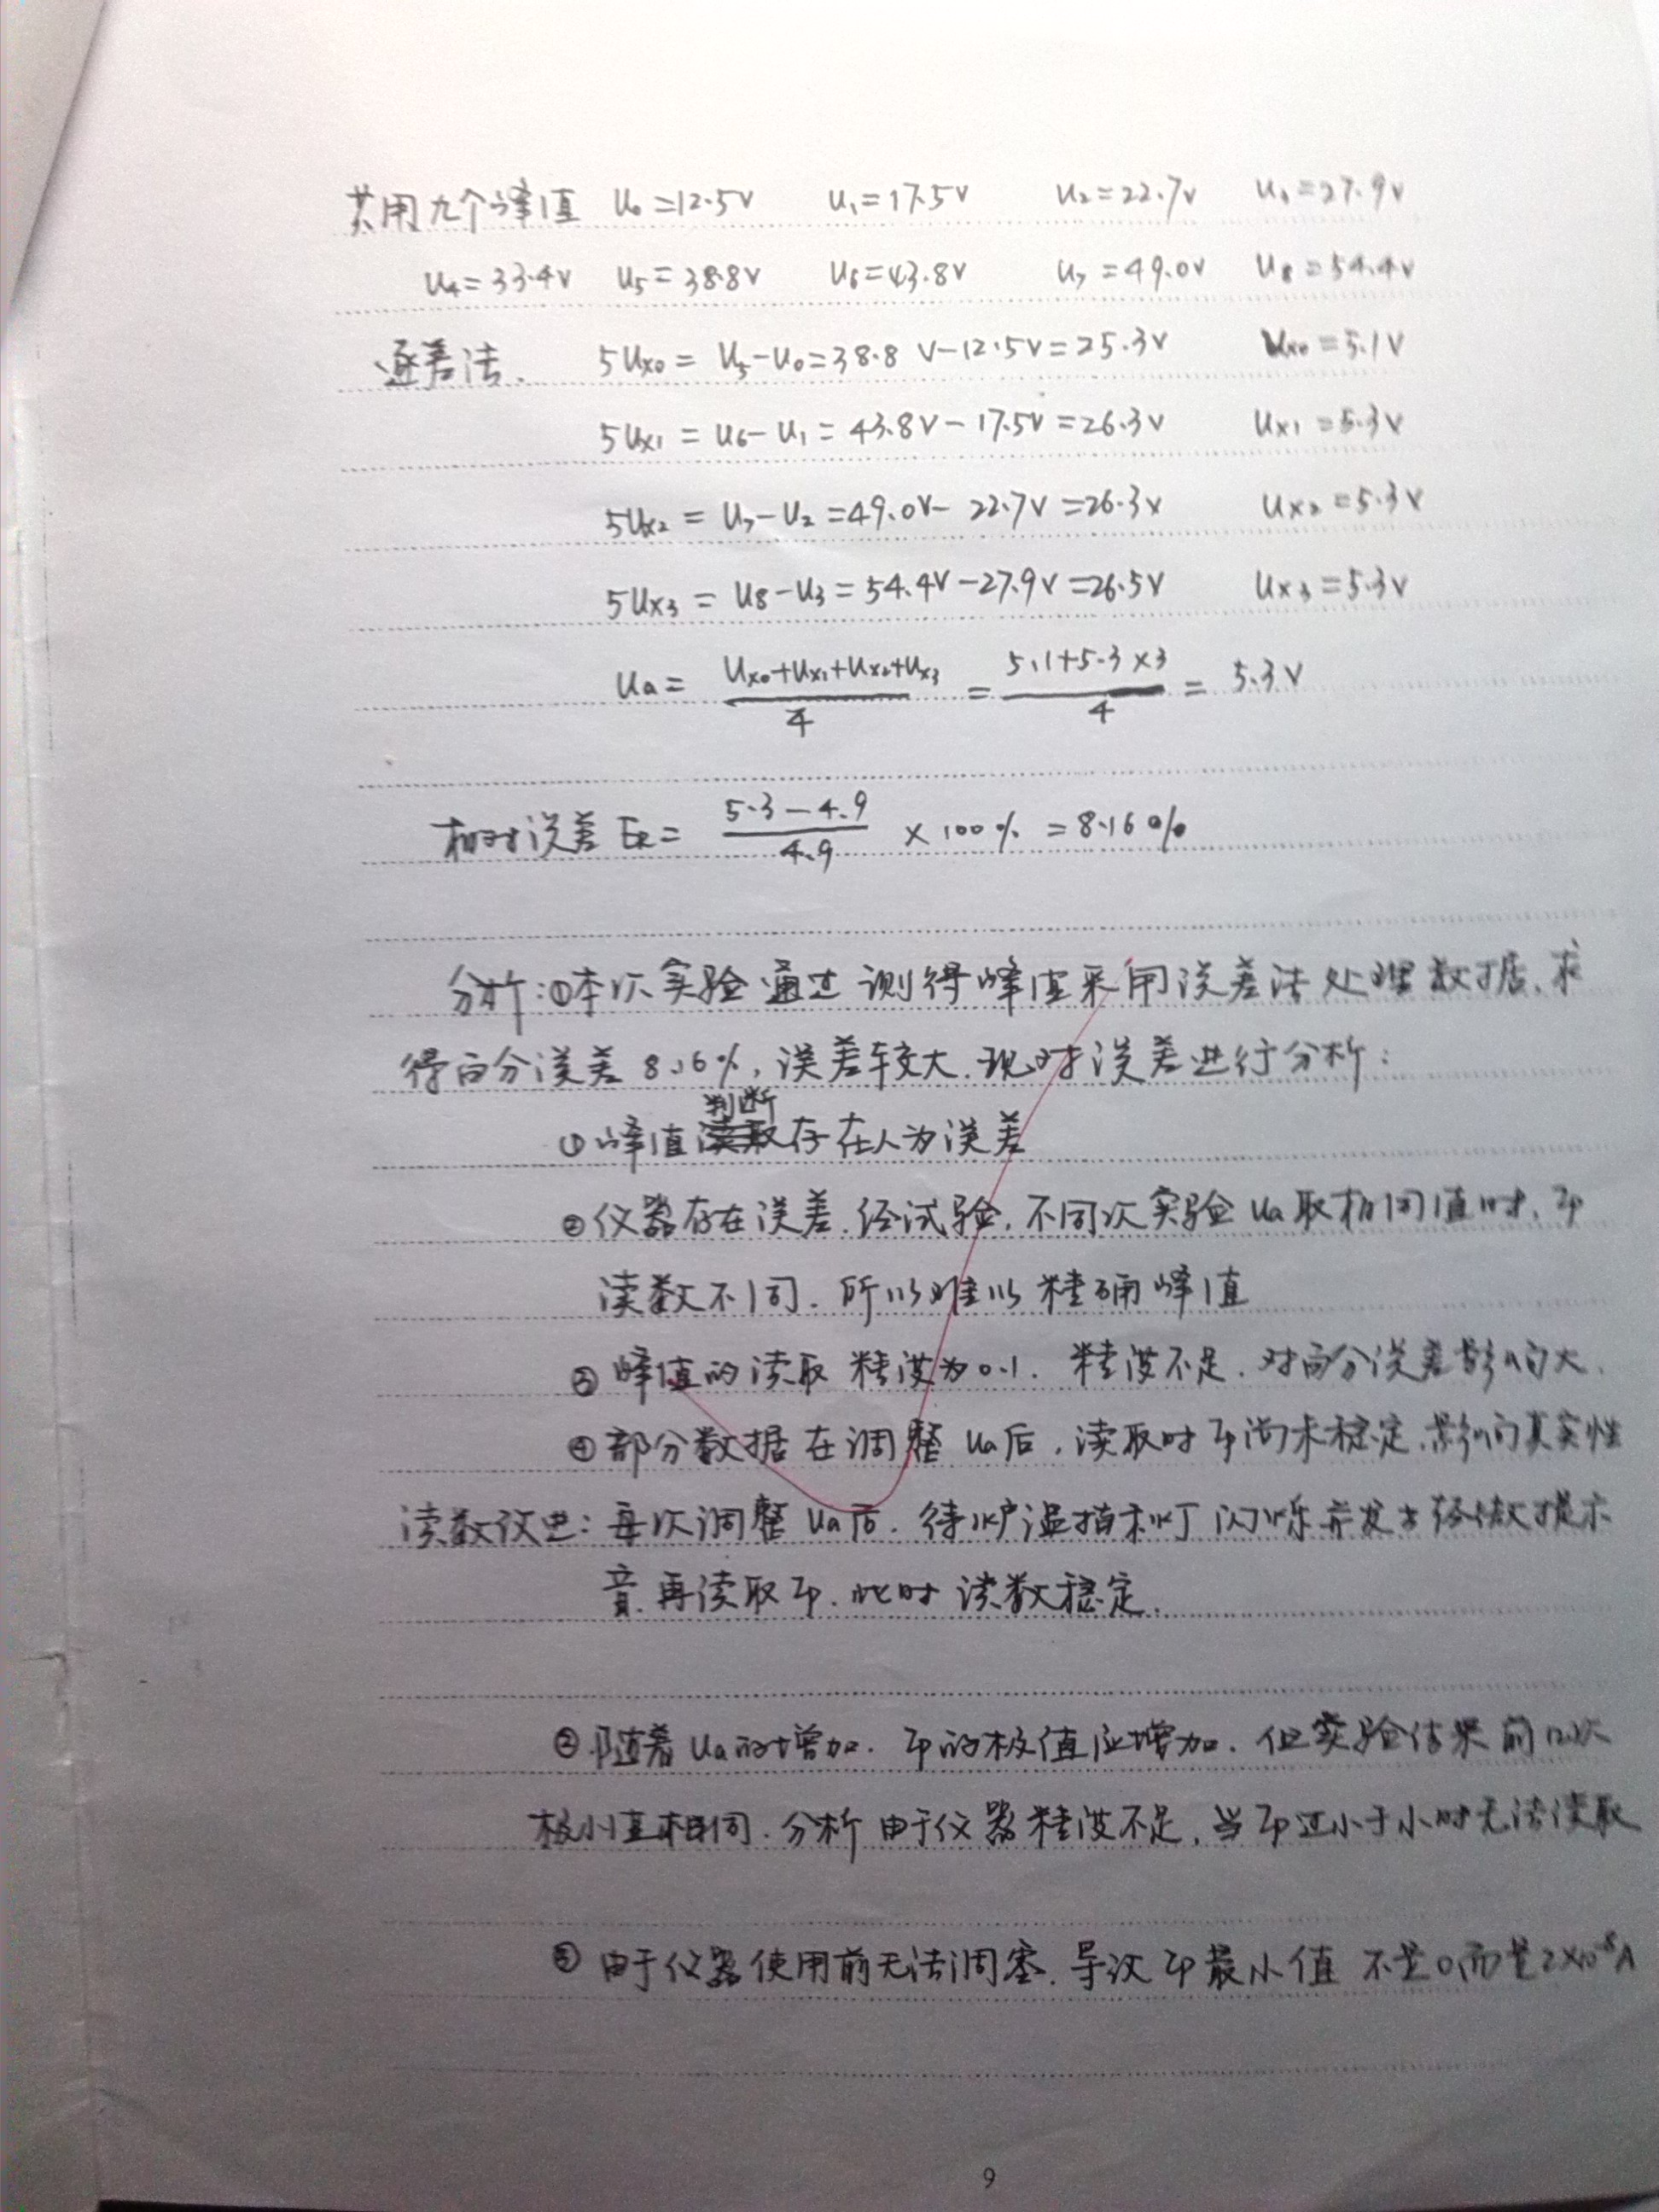 共用九个峰值 U₀=12.5V U₁=17.5V U₂=22.7V U₃=27.9V
U₄=33.4V U₅=38.8V U₆=43.8V U₇=49.0V U₈=54.4V
逐差法. 5Ux₀ = U₅-U₀=38.8V-12.5V=25.3V Ux₀=5.1V
5Ux₁ = U₆-U₁=43.8V-17.5V=26.3V Ux₁=5.3V
5Ux₂ = U₇-U₂=49.0V-22.7V=26.3V Ux₂=5.3V
5Ux₃ = U₈-U₃=54.4V-27.9V=26.5V Ux₃=5.3V
Ua = (Ux₀+Ux₁+Ux₂+Ux₃)/4 = (5.1+5.3×3)/4 = 5.3V
相对误差 ER = (5.3-4.9)/4.9 ×100% = 8.16%
分析:①本次实验通过测得峰值采用误差法处理数据,求
得百分误差8.16%,误差较大.现对误差进行分析:
①峰值判断存在人为误差
②仪器存在误差.经试验,不同次实验Ua取相同值时,Ip
读数不同.所以难以精确峰值
③峰值的读取精度为0.1.精度不足.对百分误差影响大.
④部分数据在调整Ua后,读取时Ip尚未稳定.影响真实性
读数改进:每次调整Ua后.待炉温指示灯闪烁并发出 提示
音.再读取Ip.此时读数稳定.
②随着Ua的增加.Ip的极值应增加.但实验结果前几次
极小值相同.分析由于仪器精度不足,当Ip过小于小时无法读取
③由于仪器使用前无法调零.导致Ip最小值不是0,而是2×10⁻⁸A
9